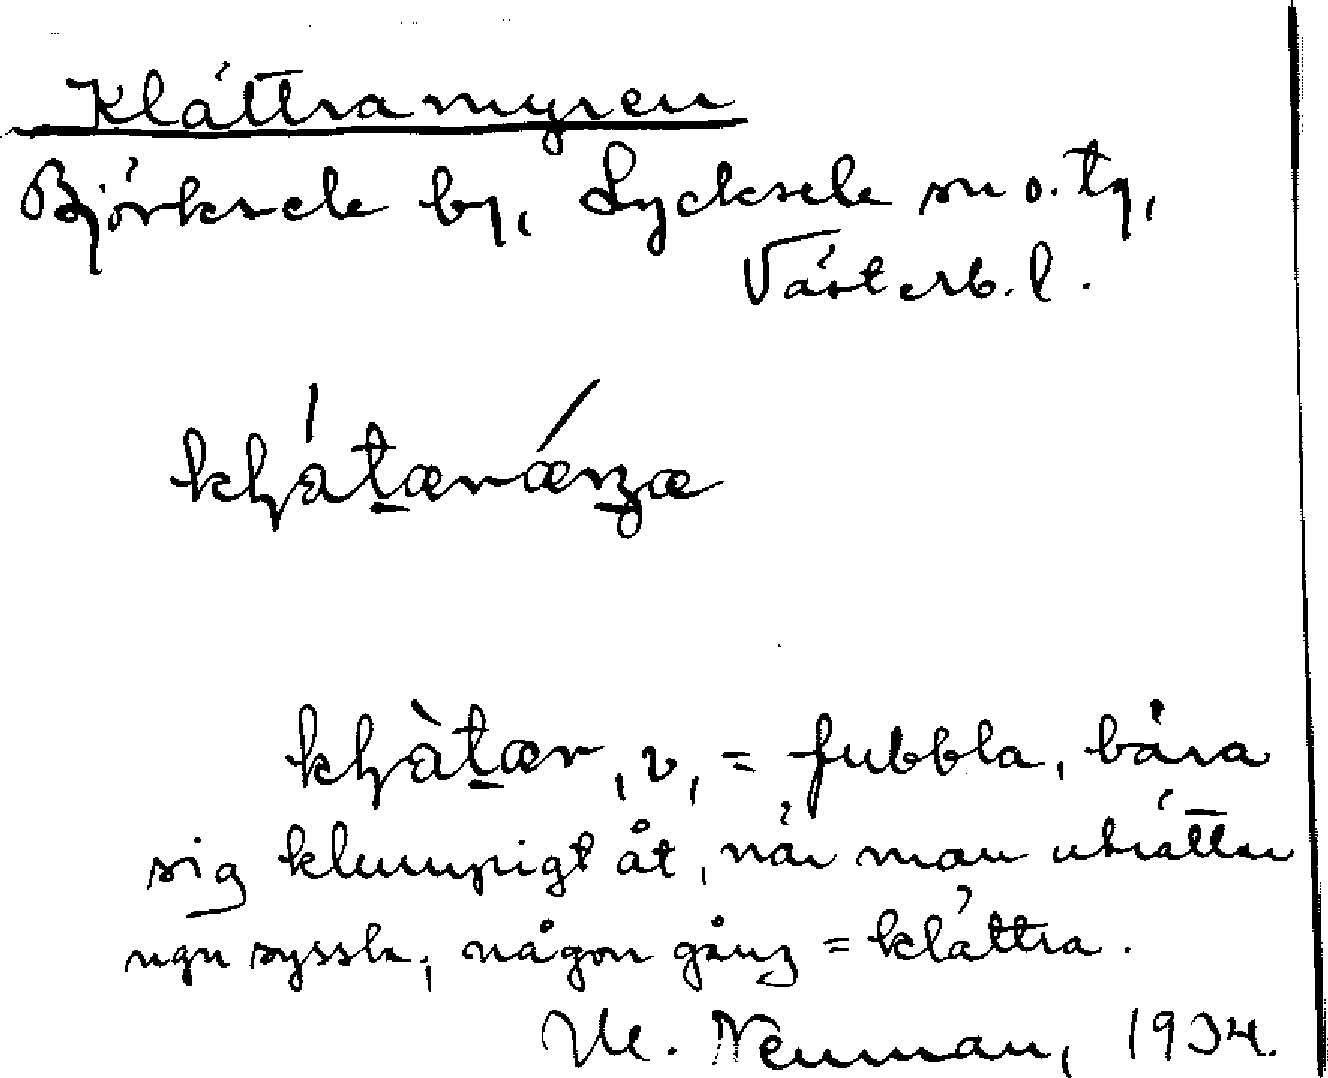 Klättramyren
Björksele by, Lycksele sn o. tg,
Västerb. l.
, v, = fubbla, bära
sig klumpigt åt, när man uträttar
ngn syssla; någon gång = klättra.
M. Neuman, 1934.